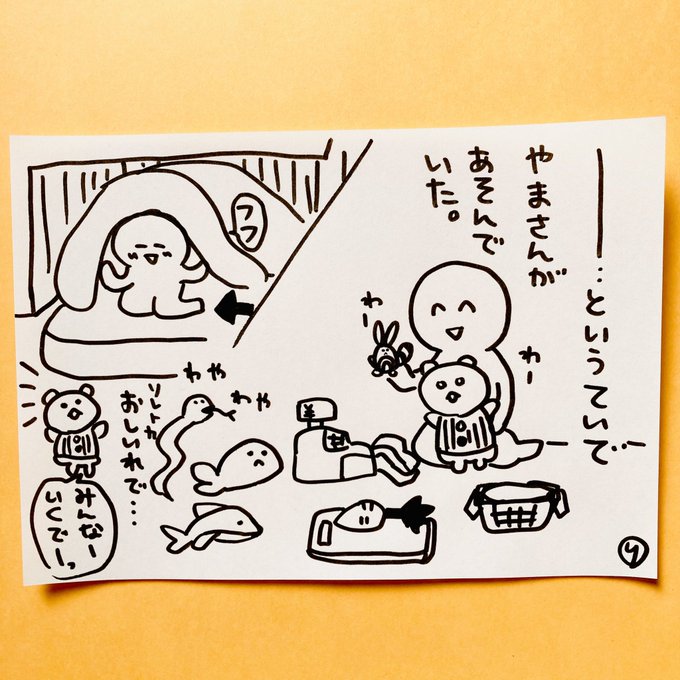 ――…というていで
やまさんが
あそんで
いた。
フフ
わー
わー
わや
わや
ソレトカ
おしいれで…
みんなー
いくでーっ
¥